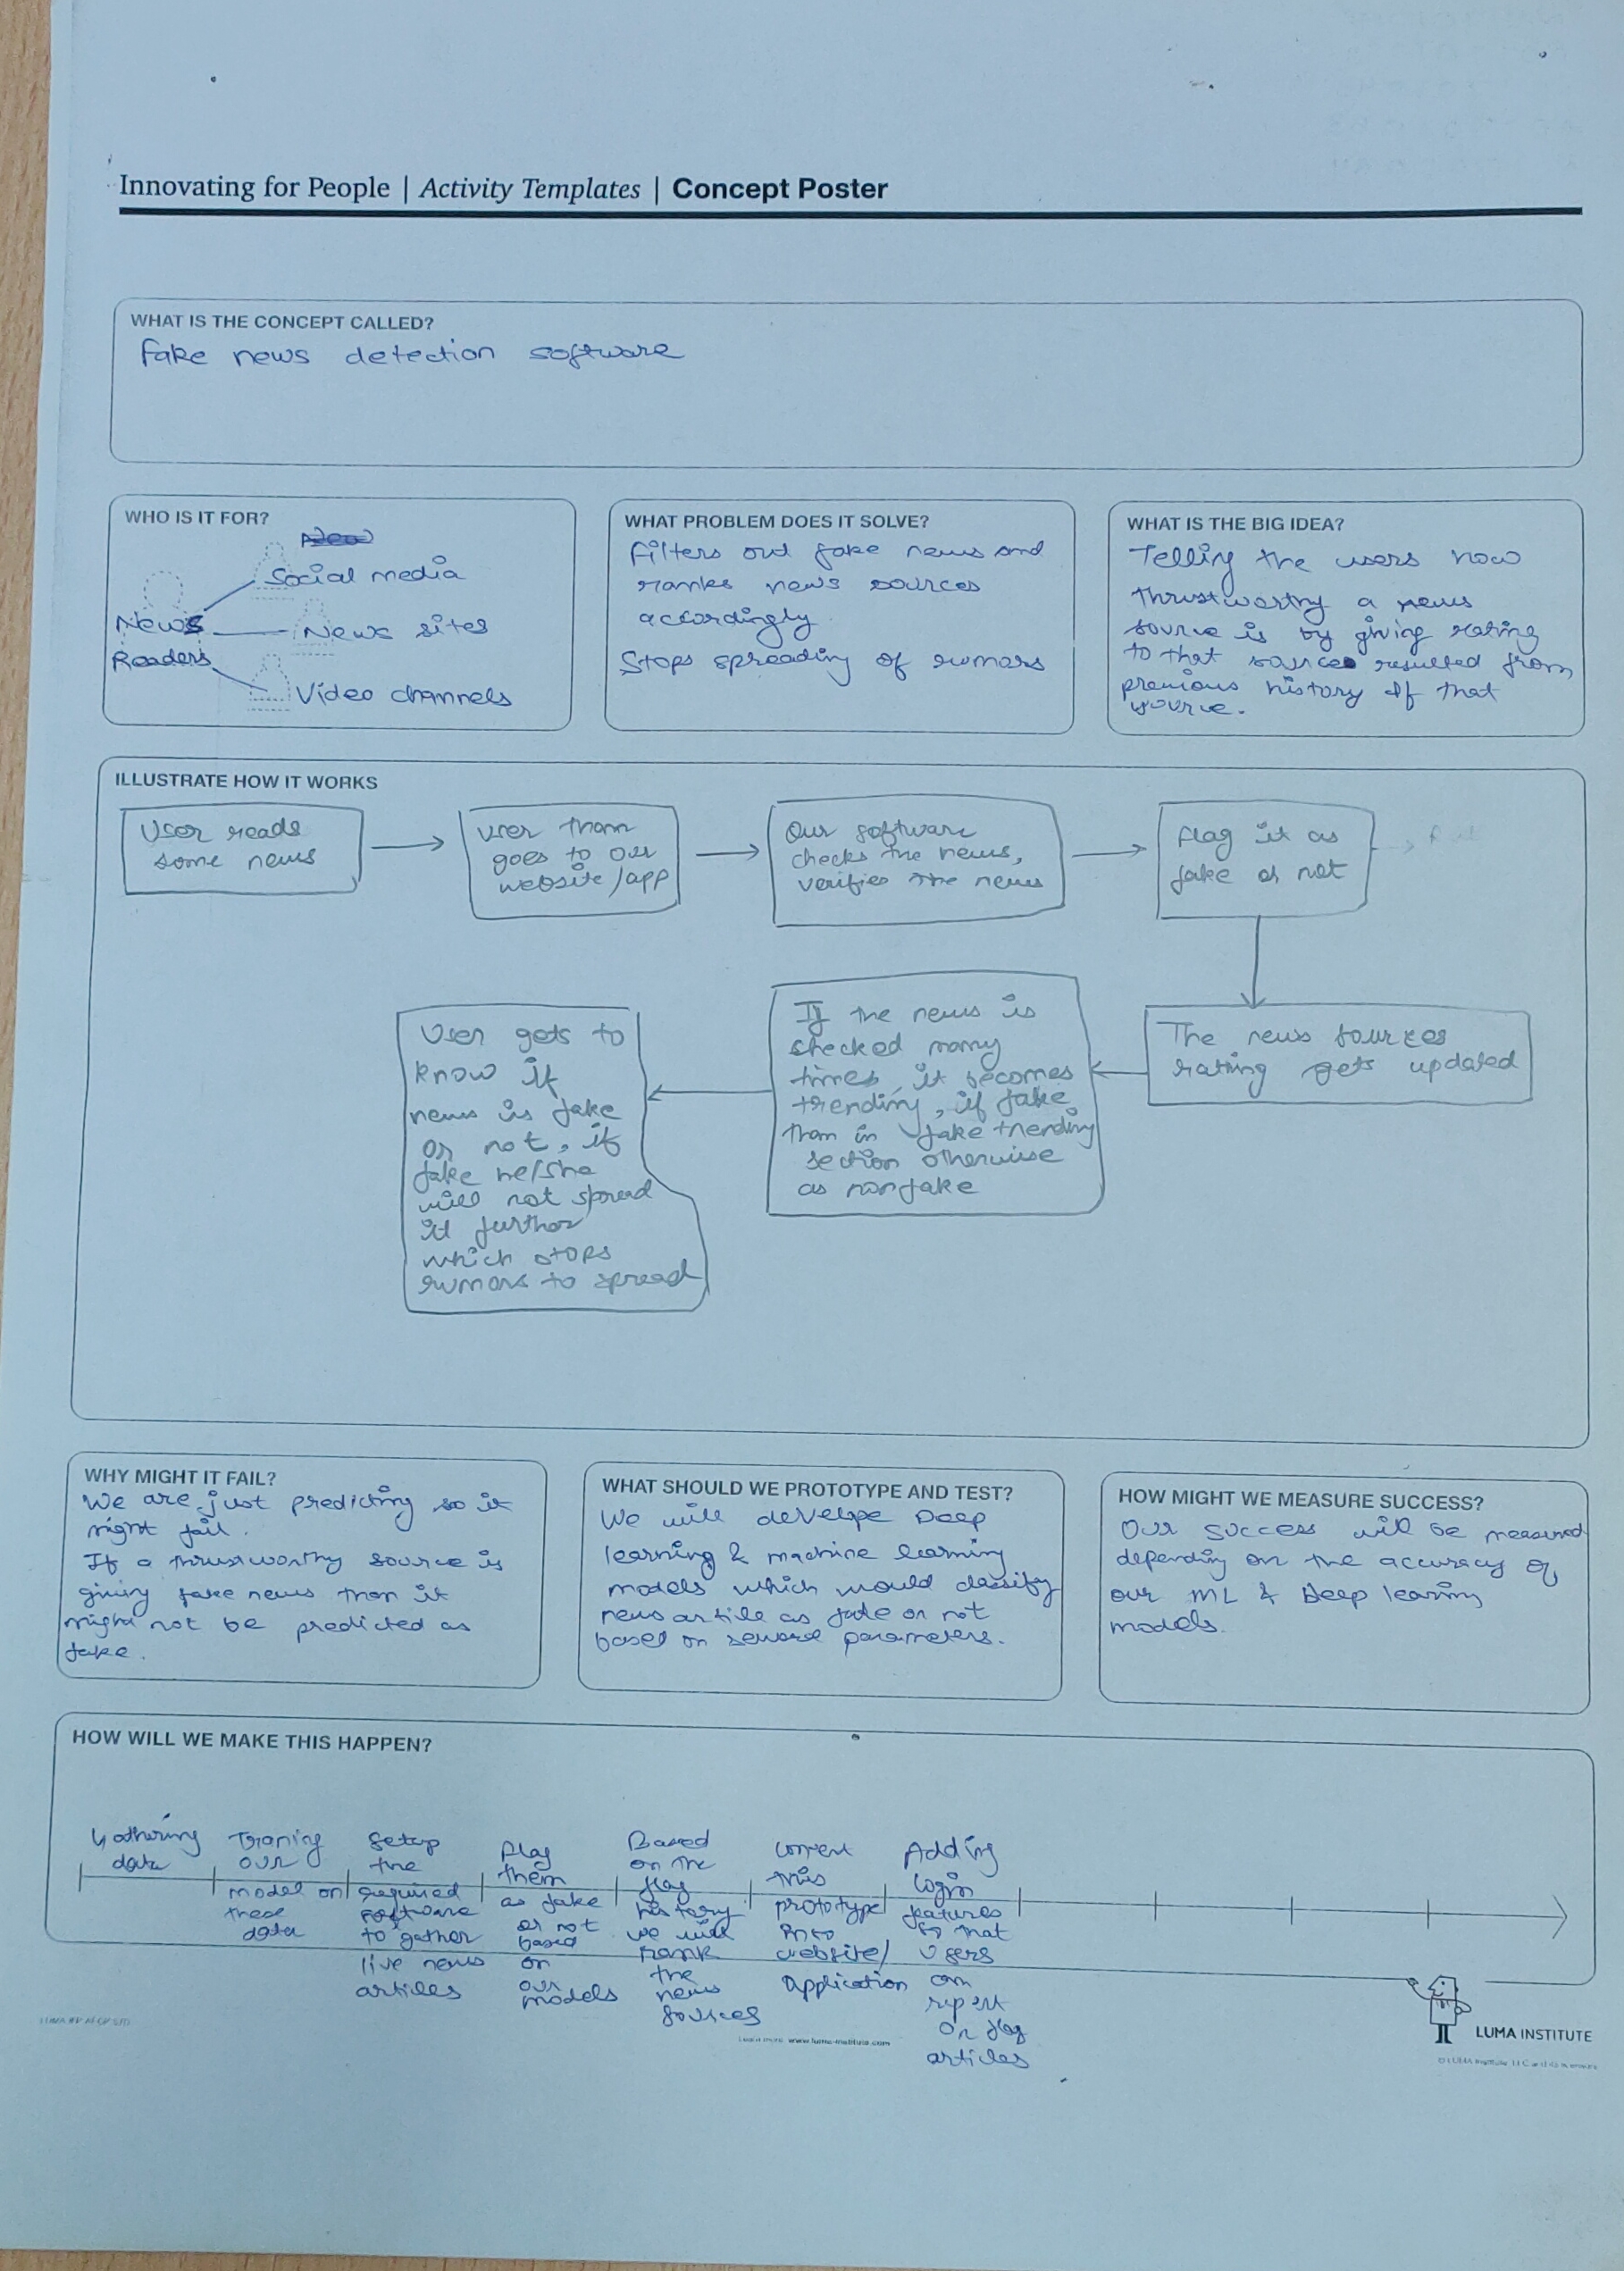 Innovating for People | Activity Templates | Concept Poster
WHAT IS THE CONCEPT CALLED?
Fake news detection software
WHO IS IT FOR?
Social media
News
News sites
Readers
Video channels
WHAT PROBLEM DOES IT SOLVE?
Filters out fake news and
ranks news sources
accordingly
Stops spreading of rumors
WHAT IS THE BIG IDEA?
Telling the users how
thrustworthy a news
source is by giving rating
to that source resulted from
previous history of that
source.
ILLUSTRATE HOW IT WORKS
User reads
some news
User then
goes to our
website/app
Our software
checks the news,
verifies the news
flag it as
fake or not
The news sources
rating gets updated
If the news is
checked many
times, it becomes
trending, if fake
then in fake trending
section otherwise
as non fake
User gets to
know if
news is fake
or not, if
fake he/she
will not spread
it further
which stops
rumors to spread
WHY MIGHT IT FAIL?
We are just predicting so it
might fail.
If a thrustworthy source is
giving fake news then it
might not be predicted as
fake.
WHAT SHOULD WE PROTOTYPE AND TEST?
We will develope Deep
learning & machine learning
models which would classify
news article as fake or not
based on several parameters.
HOW MIGHT WE MEASURE SUCCESS?
Our success will be measured
depending on the accuracy of
our ML & Deep learning
models.
HOW WILL WE MAKE THIS HAPPEN?
Gathering
data
Traning
our
model on
these
data
Setup
the
required
software
to gather
live news
articles
Flag
them
as fake
or not
based
on
our
models
Based
on the
flag
history
we will
rank
the
news
sources
convert
this
prototype
into
website/
application
Adding
login
features
so that
users
can
report
or flag
articles
Learn more www.luma-institute.com
LUMA INSTITUTE